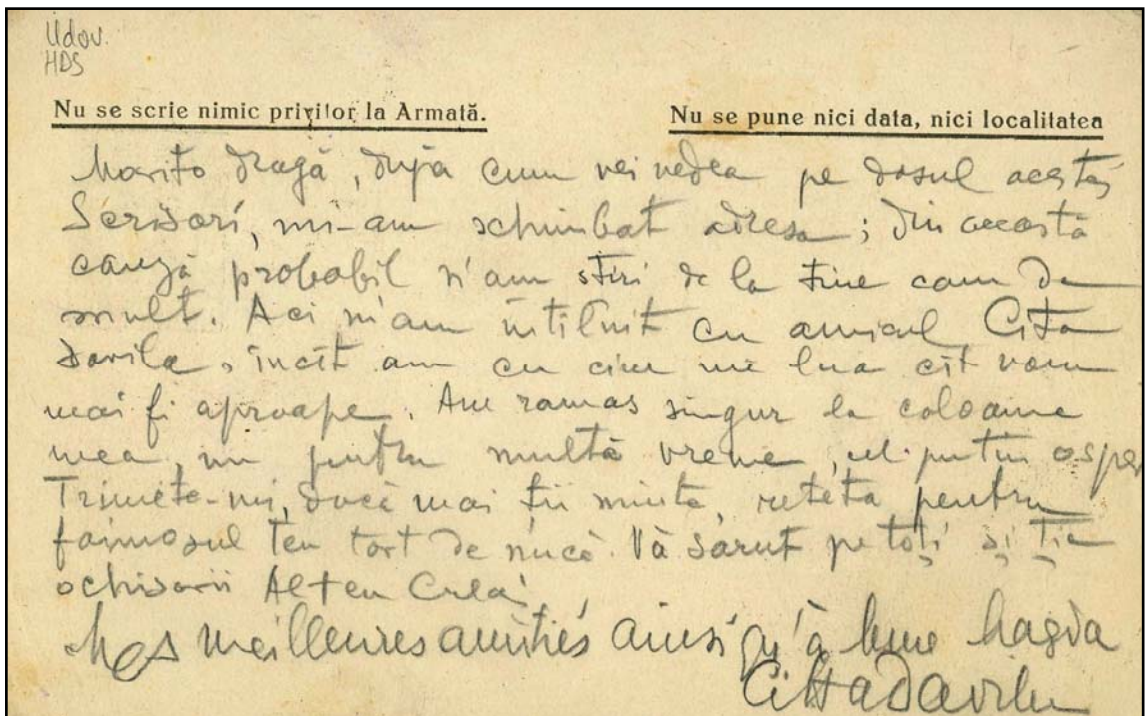 Udov.
HDS
Nu se scrie nimic privitor la Armată.
Nu se pune nici data, nici localitatea
Marito dragă, după cum vei vedea pe dosul acestei
Scrisori, mi-am schimbat adresa; din această
cauză probabil n'am știri de la tine cam de
mult. Aci m'am întîlnit cu amicul Cita
Davila, încît am cu cine me lua cît vom
mai fi aproape. Am ramas singur la coloana
mea, nu pentru multă vreme, cel puțin osper
Trimete-mi, dacă mai ții minte, reteta pentru
faimosul teu tort de nucă. Vă sarut pe toți și ție
ochisorii Al teu
Mes meilleures amitiés ainsi qu'à Mme Magda
Citta Davila